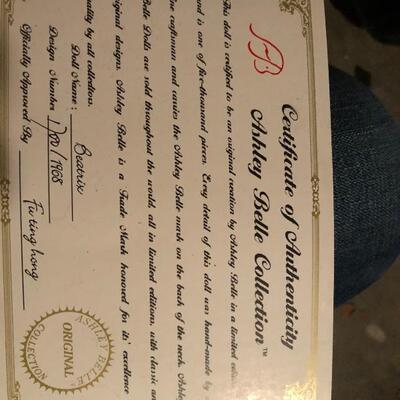 AB
Certificate of Authenticity
Ashley Belle Collection™
This doll is certified to be an original creation by Ashley Belle in a limited
and is one of five-thousand pieces. Every detail of this doll was hand-made by
craftsman and carries the Ashley Belle mark on the back of the neck. Ashley
Belle Dolls are sold throughout the world, all in limited editions, with classic and
original designs. Ashley Belle is a Trade Mark honored for its' excellence
quality by all collectors.
Doll Name: Beatrix
Design Number 1700/1908
Officially Approved By Fu ting hong
ASHLEY BELLE
ORIGINAL
COLLECTION